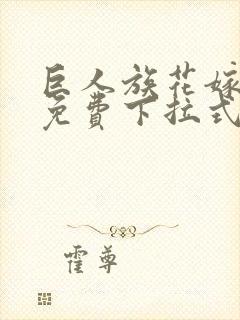 巨人族花嫁
免费下拉式
霍尊